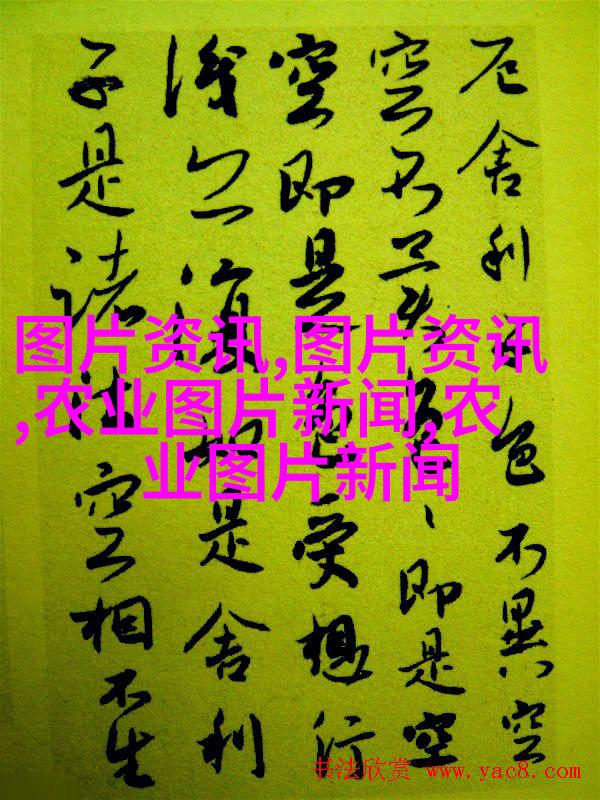 厄舍利子色不異空
空不異色、即是空
空即是色受想行
識亦復如是舍利
子是諸法空相不生
图片资讯,图片资讯
,农业图片新闻,农
业图片新闻
书法欣赏 www.yac8.com